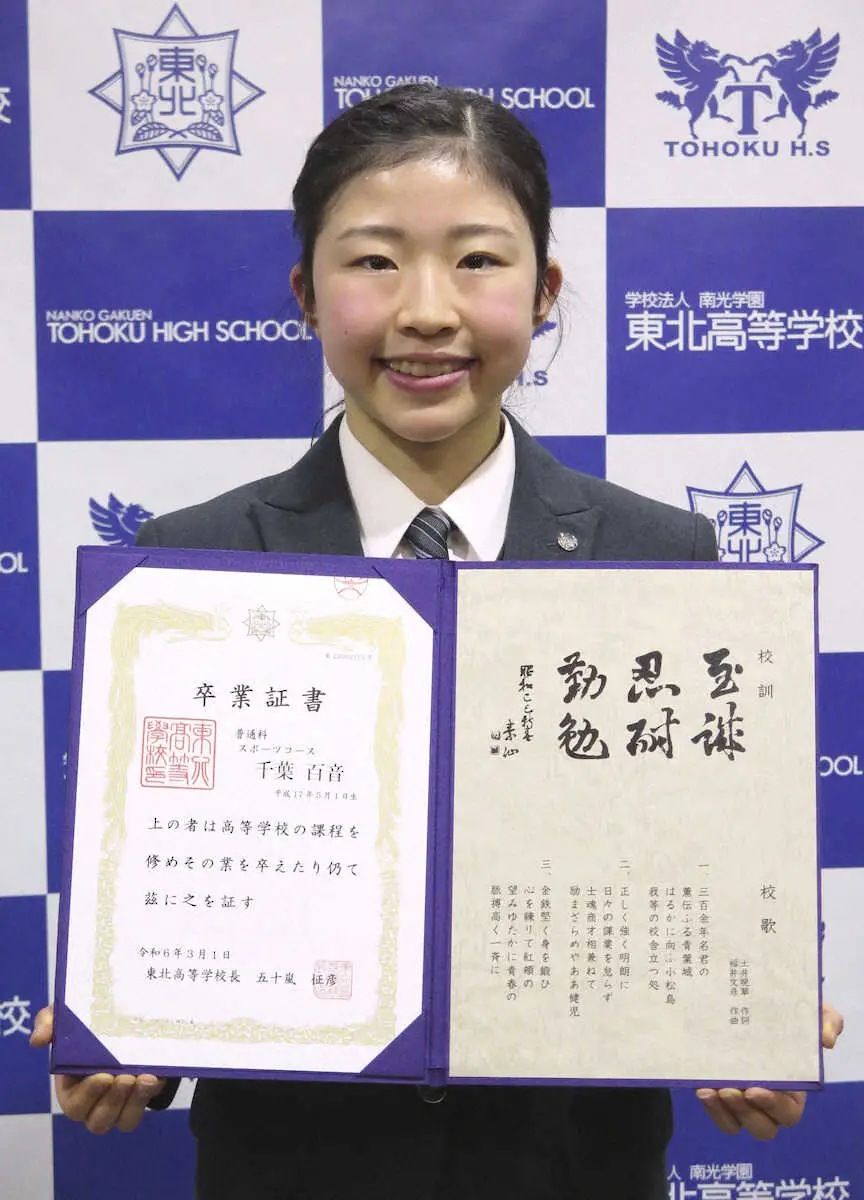 東北
NANKO GAKUEN
TOHOKU HIGH SCHOOL
T
TOHOKU H.S
校
NANKO GAKUEN
TOHOKU HIGH SCHOOL
学校法人 南光学園
東北高等学校
H.S
OL
東北
卒業証書
東北
高等
学校印
普通科
スポーツコース
千葉 百音
平成17年5月1日生
上の者は高等学校の課程を
修めその業を卒えたり仍て
茲に之を証す
令和6年3月1日
東北高等学校長 五十嵐 征彦
校訓
至誠
忍耐
勤勉
昭和
校歌
土井晩翠 作詞
福井文彦 作曲
一、三百余年名君の
薫伝ふる青葉城
はるかに向ふ小松島
我等の校舎立つ処
二、正しく強く明朗に
日々の課業を怠らず
士魂商才相兼ねて
励まざらめやああ健児
三、金鉄堅く身を鍛ひ
心を練りて紅顔の
望みゆたかに青春の
脈搏高く一斉に
OOL
校
人 南光学園
東北高等学校